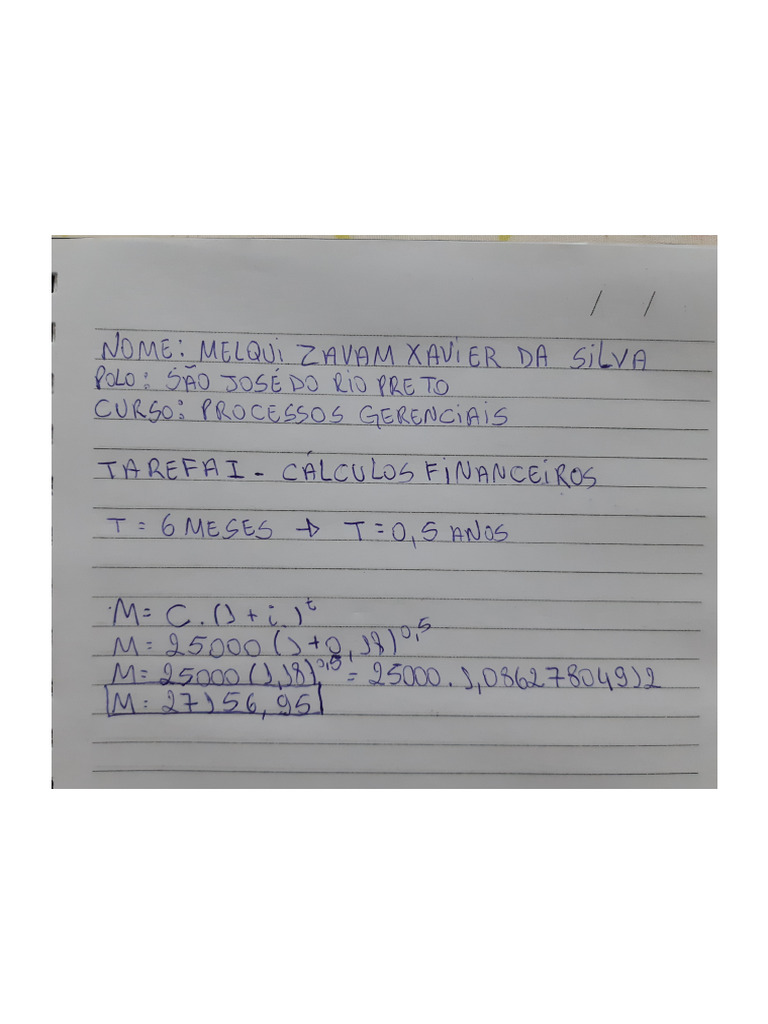 / /
NOME: MELQUI ZAVAM XAVIER DA SILVA
POLO: SÃO JOSÉ DO RIO PRETO
CURSO: PROCESSOS GERENCIAIS
TAREFA I - CÁLCULOS FINANCEIROS
T = 6 MESES → T = 0,5 ANOS
M = C.(1 + i.)^t
M = 25000 (1+0,18)^0,5
M = 25000 (1,18)^0,5 = 25000 . 1,08627804912
M = 27156,95